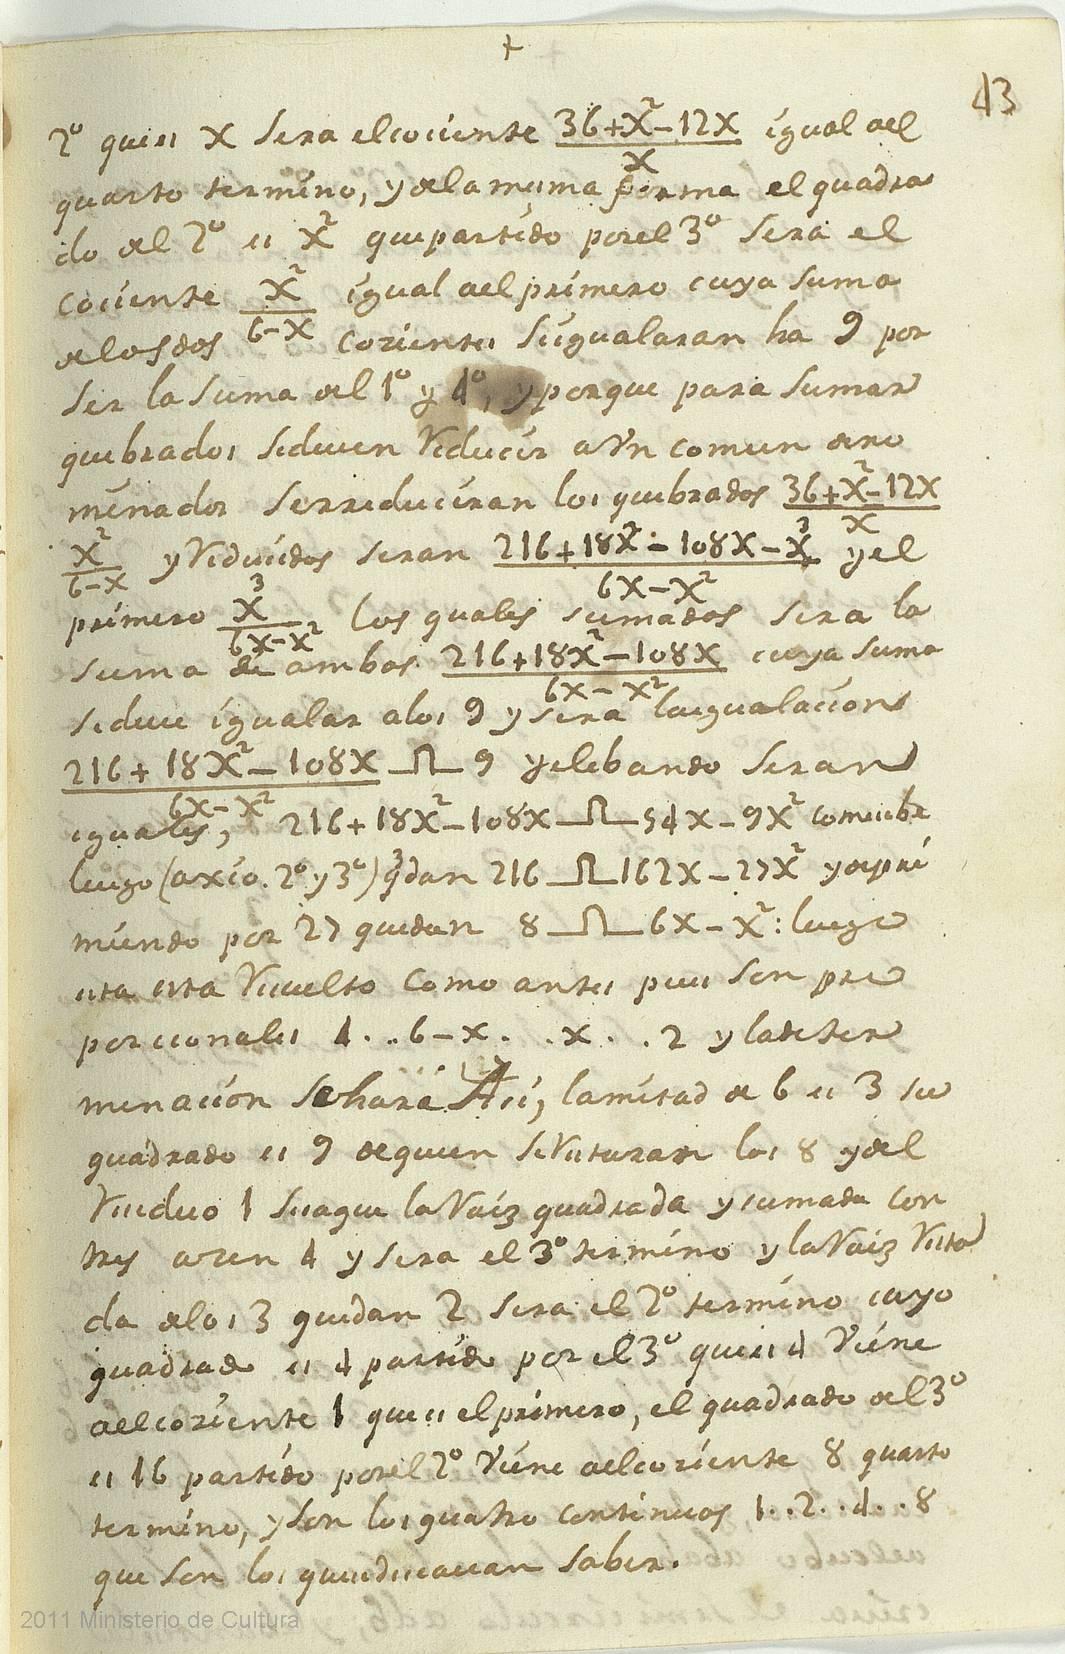 +
43
2º que es x sera el cociente 36+x²-12x igual ael
x
quarto termino, y dela misma forma el quadra
do del 2º es x² que partido por el 3º sera el
cociente x² igual ael primero cuya suma
6-x
delos dos cocientes sugualaran ha 9 por
ser la suma del 1º y 4º, y porque para sumar
quebrados sedeven Reducir a Un comun deno
minador serreduciran los quebrados 36+x²-12x
x
x² y Reducidos seran 216+18x²-108x-x³ y el
6-x 6x-x²
primero x³ los quales sumados sera la
6x-x²
suma de ambos 216+18x²-108x cuya suma
6x-x²
sedeve igualar alos 9 y sera laigualacion
216+18x²-108x ⎍ 9 y elebando seran
6x-x²
iguales, 216+18x²-108x ⎍ 54x-9x²
luego (axio. 2º y 3º) qdan 216 ⎍ 162x-27x² y depri
miendo por 27 quedan 8 ⎍ 6x-x²: luego
esta esta Resuelto como antes pues son pro
porcionales 4..6-x...x...2 y la deter
minacion se hara Asi, la mitad de 6 es 3 su
quadrado es 9 de quien seRestaran los 8 y del
Residuo 1 sesaque la Raiz quadrada y sumada con
tres acen 4 y sera el 3º termino y la Raiz Resta
da delos 3 quedan 2 sera el 2º termino cuyo
quadrado es 4 partido por el 3º que es 4 Viene
ael cociente 1 que es el primero, el quadrado del 3º
es 16 partido por el 2º Viene ael cociente 8 quarto
termino, y son los quatro continuos 1..2..4..8
que son los que sedeseavan saber.
2011 Ministerio de Cultura